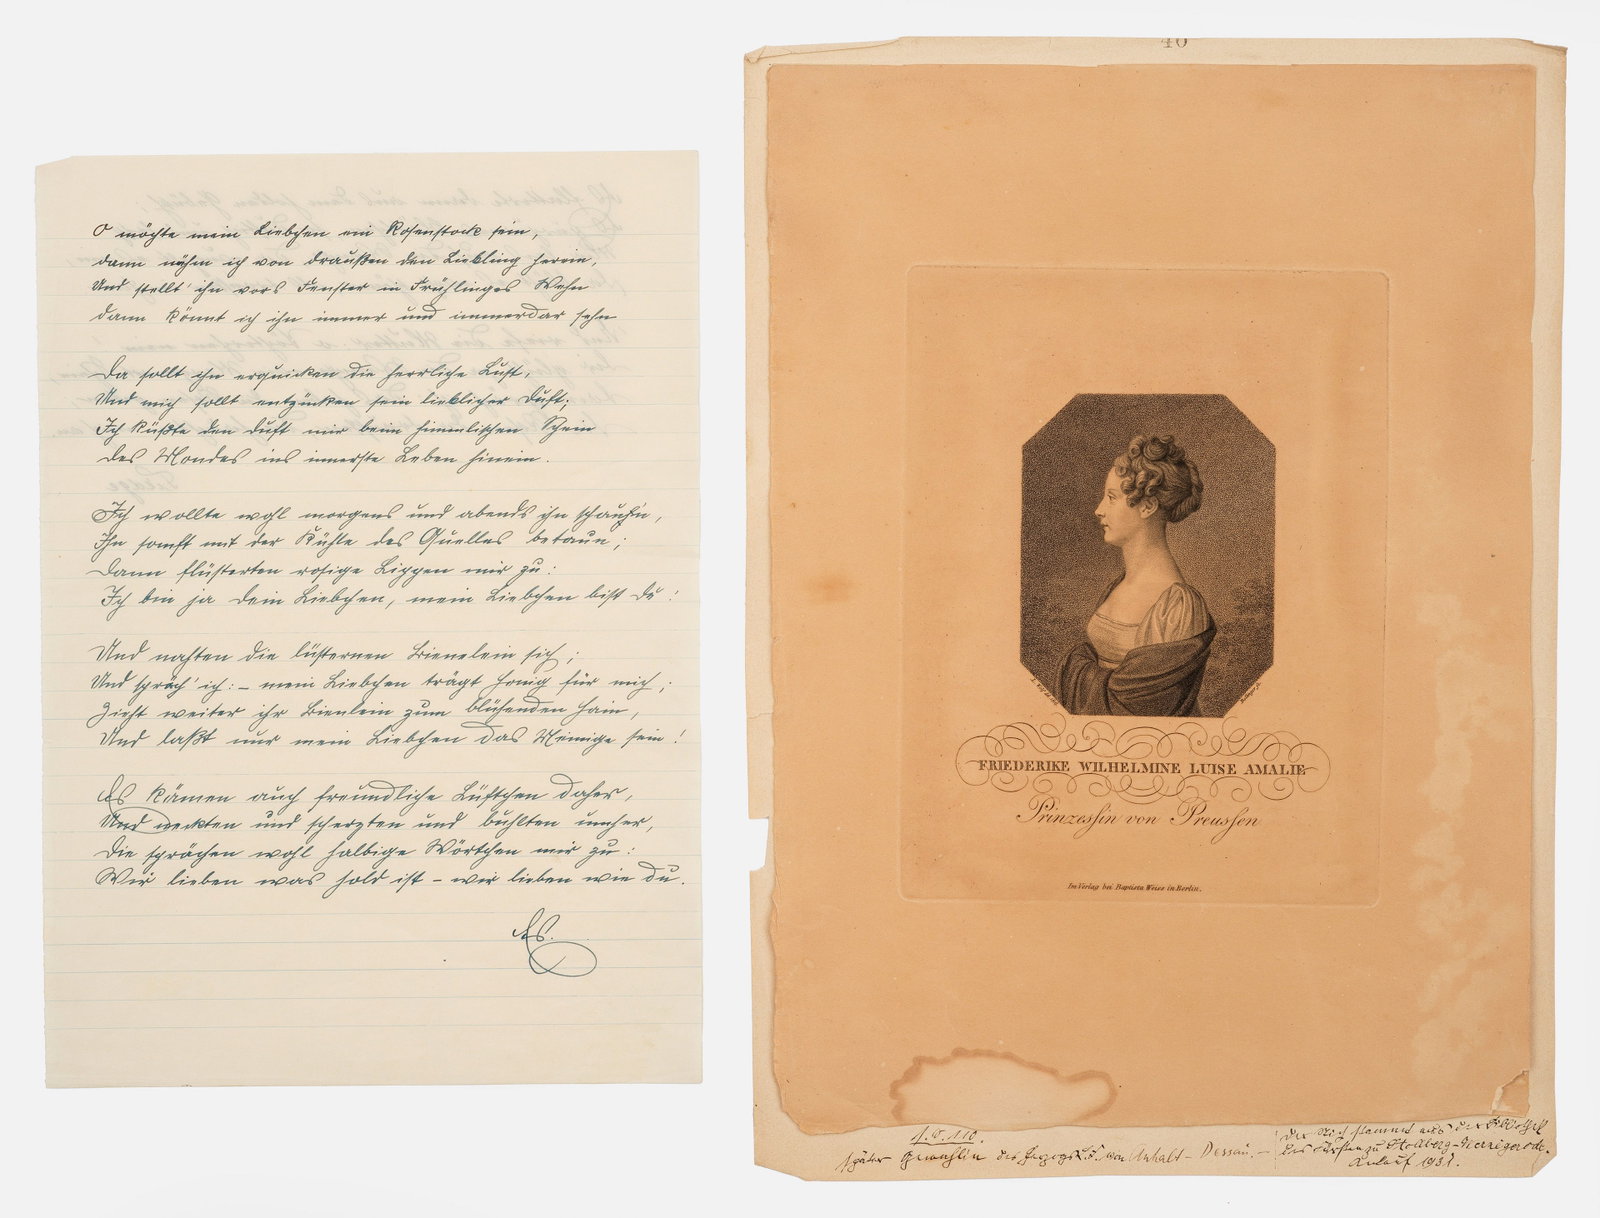 O möchte mein Liebchen ein Rosenstock sein,
dann nähm ich von draußen den Liebling herein,
Und stellt' ihn vors Fenster in Frühlinges Wehn
dann könnt ich ihn immer und immerdar sehn
Da sollt ihn erquicken die herrliche Luft,
Und mich sollt entzücken sein lieblicher Duft;
Ich küßte den Duft mir beim himmlischen Schein
des Mondes ins innerste Leben hinein.
Ich wollte wohl morgens und abends ihn schauen,
Ihn sanft mit der Kühle des Quelles betaun;
dann flüsterten rosige Lippen mir zu:
Ich bin ja dein Liebchen, mein Liebchen bist du!
Und nahten die lüsternen Bienelein sich;
Und spräch' ich: – mein Liebchen trägt Honig für mich;
Zieht weiter ihr Bienlein zum blühenden Hain,
Und laßt nur mein Liebchen das Meinige sein!
Es kämen auch freundliche Lüftchen daher,
Und neckten und scherzten und buhlten umher,
die sprächen wohl halbige Wörtchen mir zu:
Wir lieben was hold ist – wir lieben wie du.
Es.
40
FRIEDERIKE WILHELMINE LUISE AMALIE
Prinzessin von Preussen
Im Verlag bei Baptista Weiss in Berlin.
später Gemahlin des Herzogs L.F. von Anhalt-Dessau. –
Der Stich stammt aus der Bibliothek
des Fürsten zu Stolberg-Wernigerode.
Ankauf 1931.